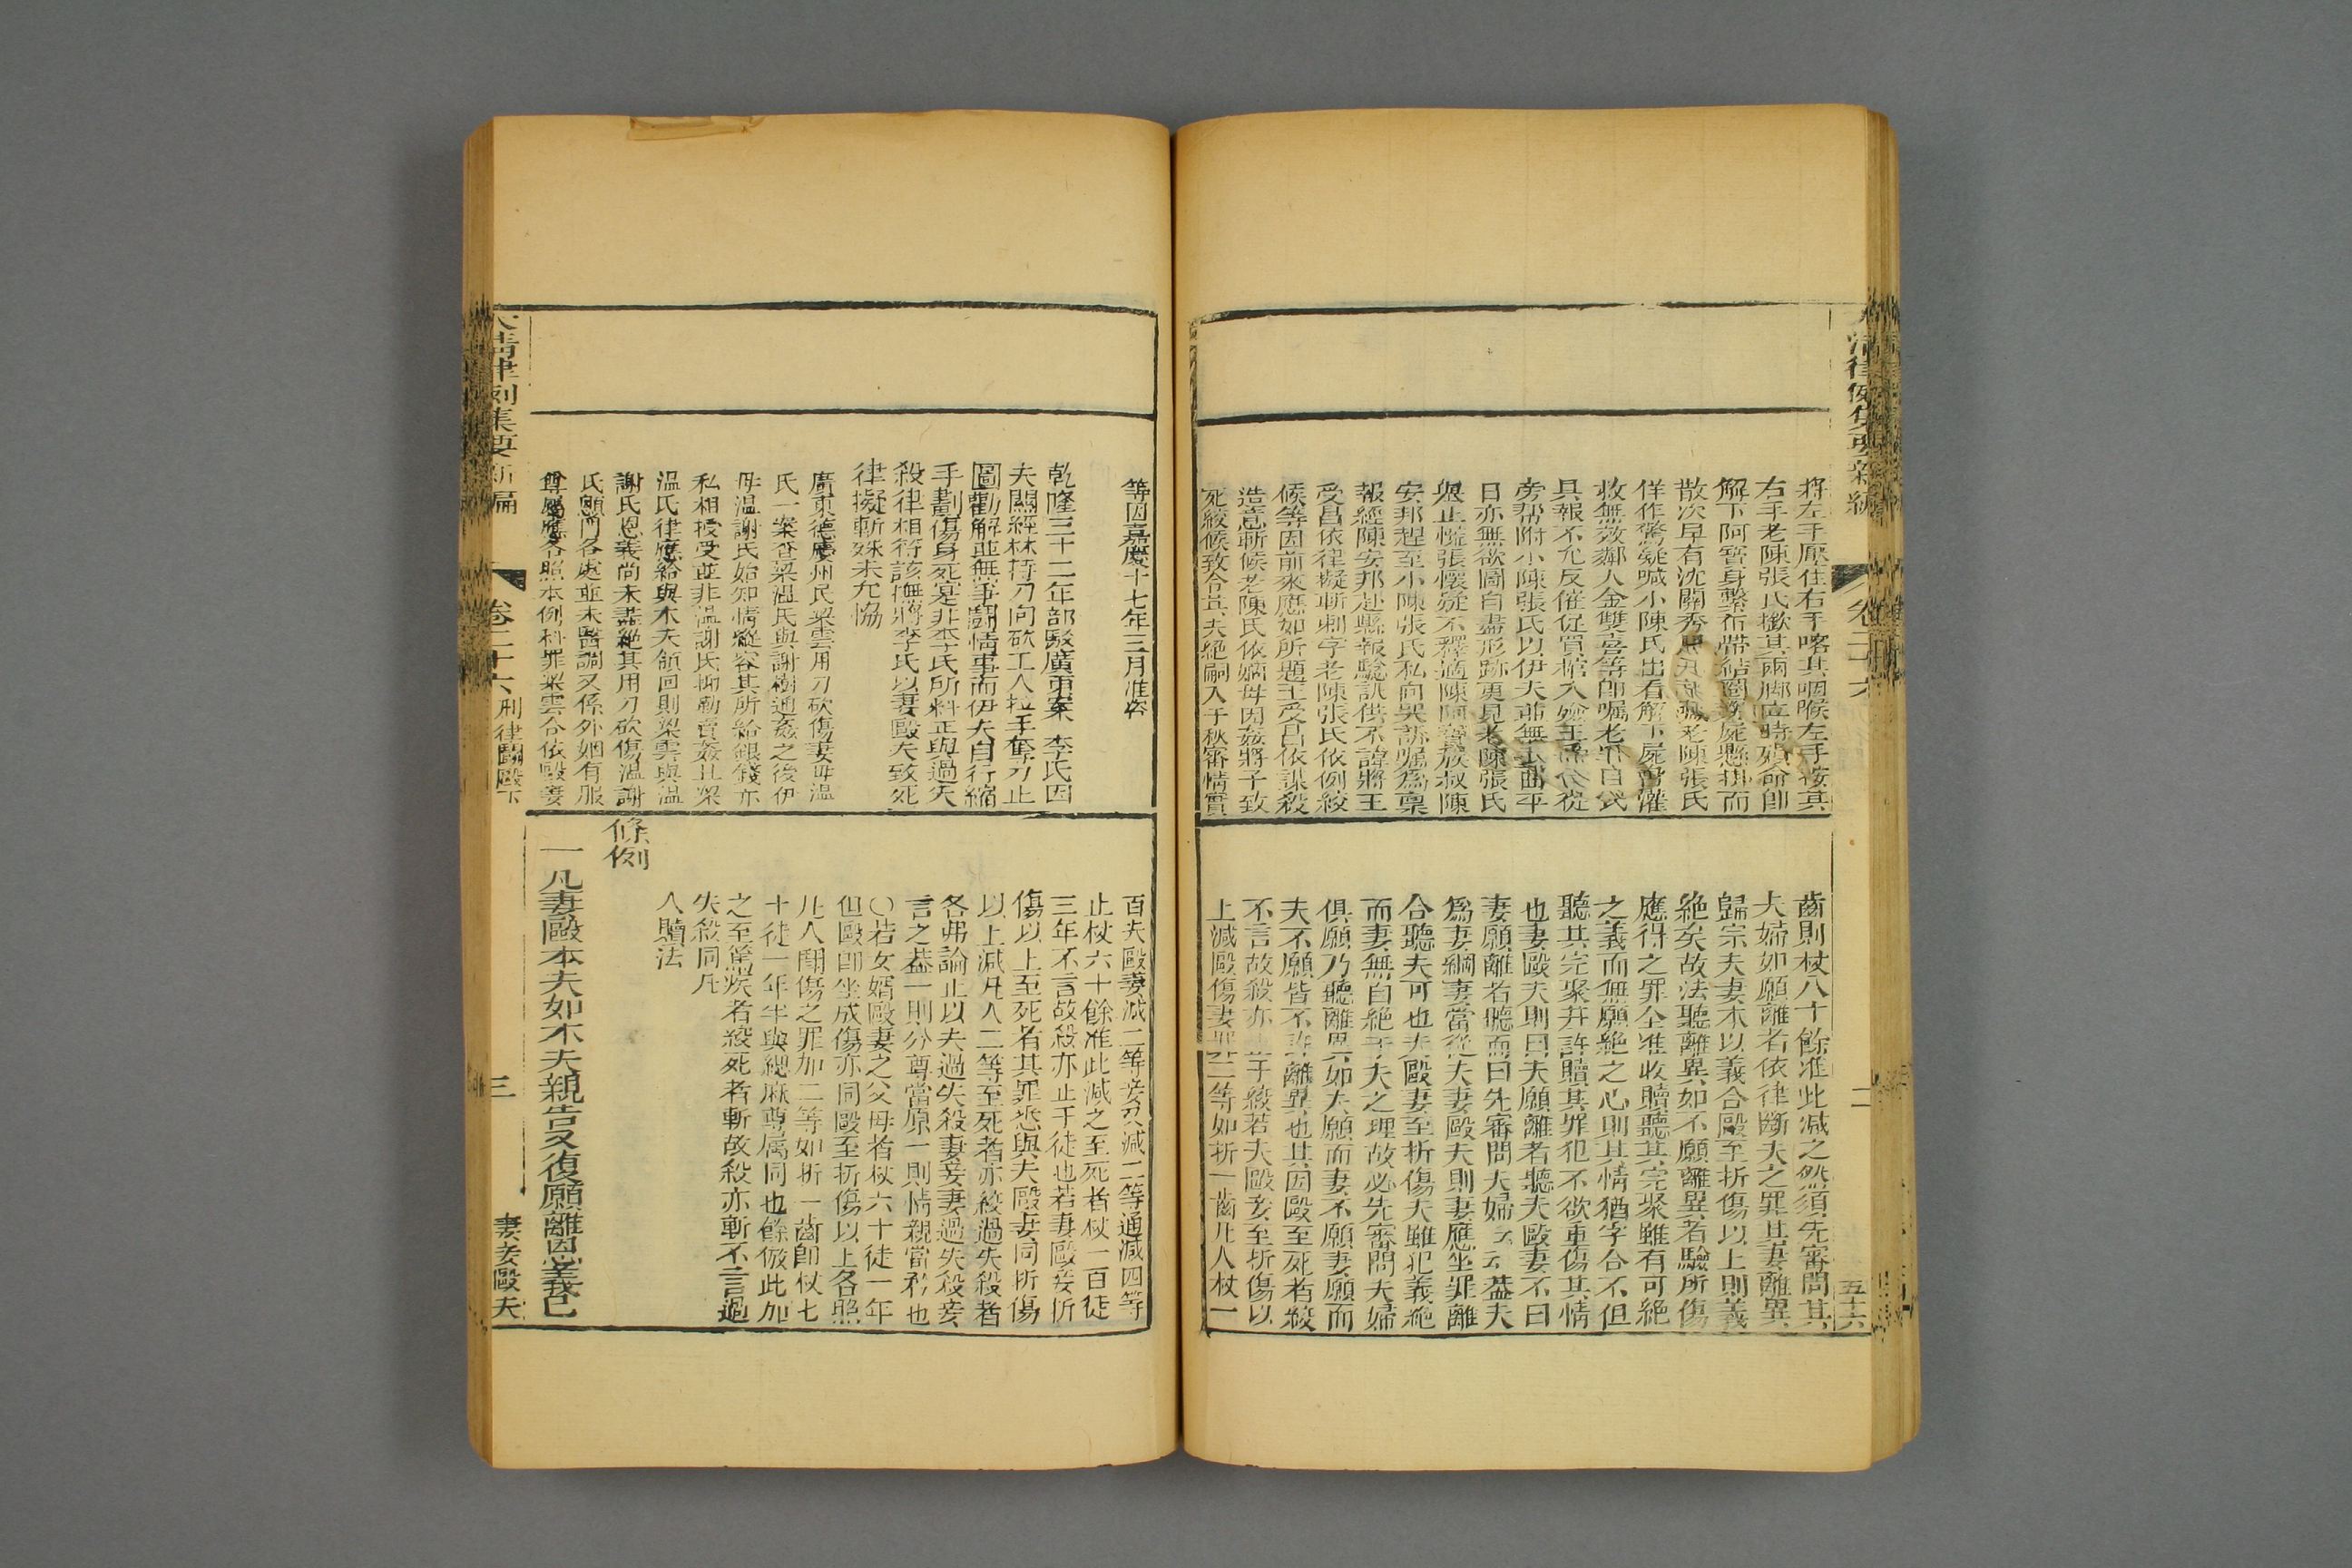 大清律例集要新編
卷二十六
二
五十六
將左手壓住右手喀其咽喉左手按其
右手老陳張氏揿其兩脚立時殞命卽
解下阿寶身繫布帶結圈將屍懸掛而
散次早有沈關秀
老陳張氏
佯作驚疑喊小陳氏出看解下屍身灌
救無效鄰人金雙喜等卽囑老
具報不允反催促買棺入殮王
旁帮附小陳張氏以伊夫並無
平
日亦無欲圖自盡形跡更見老陳張氏
舉止慌張懷疑不釋適陳阿寶族叔陳
安邦趕至小陳張氏私向哭訴囑為稟
報經陳安邦赴縣報驗訊供不諱將王
受昌依律擬斬刺字老陳張氏依例絞
候等因前來應如所題王受昌依謀殺
造意斬候老陳氏依嫡母因姦將子致
死絞候致令其夫絕嗣入于秋審情實
齒則杖八十餘准此減之然須先審問其
夫婦如願離者依律斷夫之罪其妻離異
歸宗夫妻本以義合毆至折傷以上則義
絕矣故法聽離異如不願離異者驗所傷
應得之罪全准收贖聽其完聚雖有可絕
之義而無願絕之心則其情猶字合不但
聽其完聚幷許贖其罪犯不欲重傷其情
也妻毆夫則曰夫願離者聽夫毆妻不曰
妻願離者聽而曰先審問夫婦云云葢夫
爲妻綱妻當從夫妻毆夫則妻應坐罪離
合聽夫可也夫毆妻至折傷夫雖犯義絕
而妻無自絕于夫之理故必先審問夫婦
俱願乃聽離異如夫願而妻不願妻願而
夫不願皆不許離異也其因毆至死者絞
不言故殺亦止于絞若夫毆妾至折傷以
上減毆傷妻罪二等如折一齒凡人杖一
等因嘉慶十七年三月准咨
乾隆三十二年部駁廣東案 李氏因
夫關經林持刀向砍工人拉手奪刀止
圖勸解並無爭鬭情事而伊夫自行縮
手劃傷身死寔非李氏所料正與過失
殺律相符該撫將李氏以妻毆夫致死
律擬斬殊未允協
廣東德慶州民梁雲用刀砍傷妻母溫
氏一案查梁溫氏與謝樹通姦之後伊
母溫謝氏始知情縱容其所給銀錢亦
私相授受並非溫謝氏抑勒賣姦且梁
溫氏律應給與本夫領回則梁雲與溫
謝氏恩義尚未盡絕其用刀砍傷溫謝
氏顖門各處並未醫調又係外姻有服
尊屬應各照本例科罪梁雲合依毆妻
百夫毆妻減二等妾又減二等通減四等
止杖六十餘准此減之至死者杖一百徒
三年不言故殺亦止于徒也若妻毆妾折
傷以上至死者其罪悉與夫毆妻同折傷
以上減凡人二等至死者亦絞過失殺者
各弗論止以夫過失殺妻妾妻過失殺妾
言之葢一則分尊當原一則情親當矜也
○若女婿毆妻之父母者杖六十徒一年
但毆卽坐成傷亦同毆至折傷以上各照
凡人鬭傷之罪加二等如折一齒卽杖七
十徒一年半與緦麻尊属同也餘倣此加
之至篤疾者絞死者斬故殺亦斬不言過
失殺同凡
人贖法
條例
一凡妻毆本夫如本夫親告又復願離因恩義已
大清律例集要新編
卷二十六
刑律鬭毆下
三
妻妾毆夫